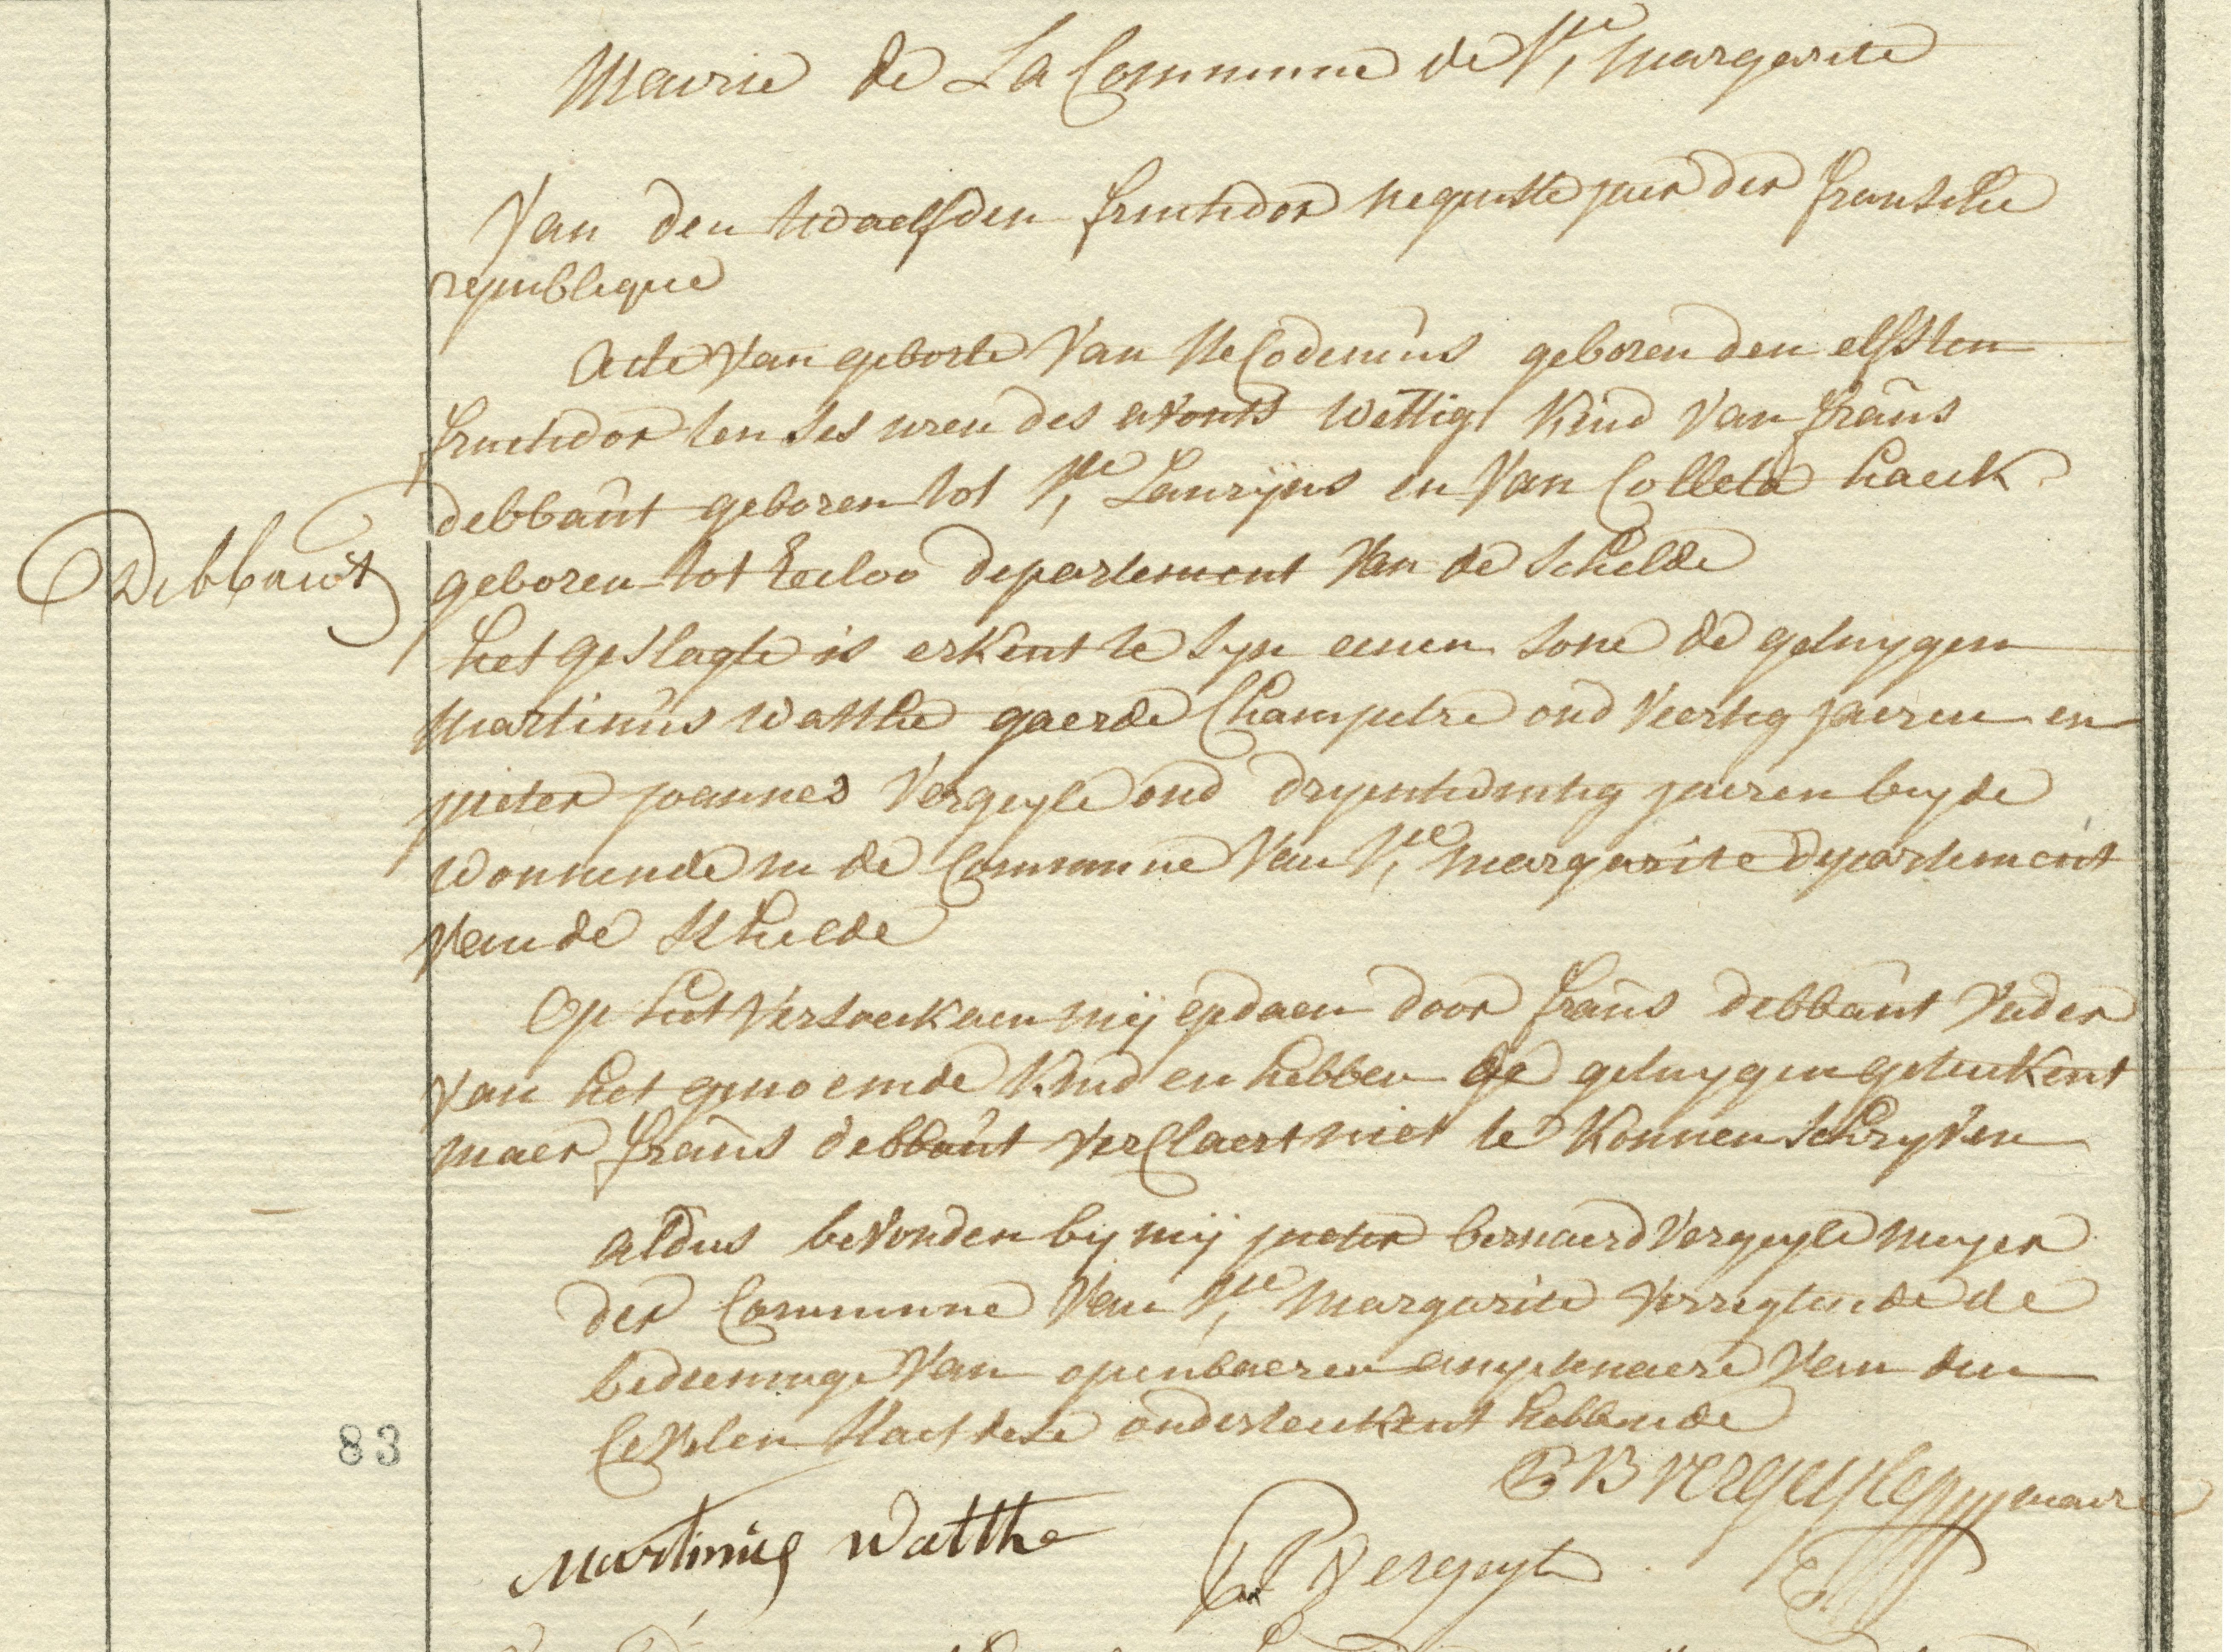 Mairie de La Commune de Ste Margarite
Van den twaelfden fruchdor negenste jaer der fransche
republique
Acte van geborte van Necodemus geboren den elfsten
fruchdor ten ses uren des avonts wettig kind van frans
debbaut geboren tot Ste Laurijns en van Colleta haeck
Debbaut
geboren tot Eecloo departement van de Schelde
het geslagte is erkent te syn eenen sone de getuygen
Martinus Watthe gaerde Champetre oud veertig jaeren en
pieter joannes Vergeyle oud dryentwintig jaeren beyde
wonnende in de Commune van Ste Margarite departement
van de Schelde
Op het versoeck aen mij gedaen door frans debbaut vader
van het genoemde kind en hebben de getuygen geteekent
maer frans debbaut verclaert niet te konnen schryven
aldus bevonden bij mij pieter bernaerd Vergeyle meyer
der Commune van Ste Margarite verrigtende de
bedieninge van openbaeren amptenaere van den
Cevielen Staet dese onderteekent hebbende
83
PB vergeyle maire
Martinus Watthe
PJ Vergeyle